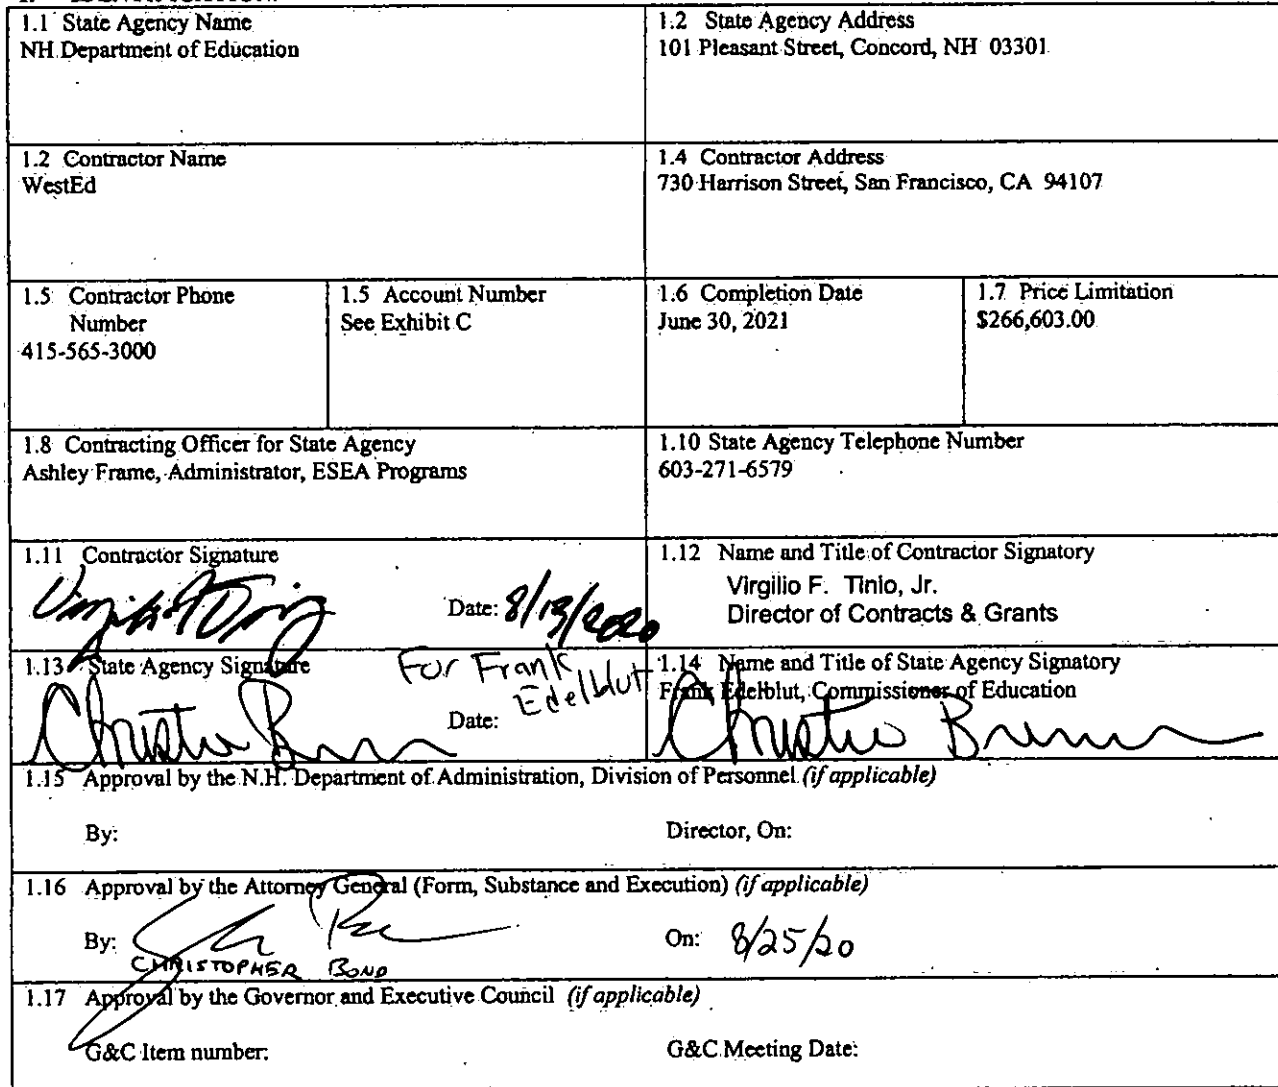 1.1 State Agency Name
NH Department of Education
1.2 State Agency Address
101 Pleasant Street, Concord, NH 03301
1.2 Contractor Name
WestEd
1.4 Contractor Address
730 Harrison Street, San Francisco, CA 94107
1.5 Contractor Phone
Number
415-565-3000
1.5 Account Number
See Exhibit C
1.6 Completion Date
June 30, 2021
1.7 Price Limitation
$266,603.00
1.8 Contracting Officer for State Agency
Ashley Frame, Administrator, ESEA Programs
1.10 State Agency Telephone Number
603-271-6579
1.11 Contractor Signature
Date: 8/13/2020
1.12 Name and Title of Contractor Signatory
Virgilio F. Tinio, Jr.
Director of Contracts & Grants
1.13 State Agency Signature
For Frank
Edelblut
Date:
1.14 Name and Title of State Agency Signatory
Frank Edelblut, Commissioner of Education
1.15 Approval by the N.H. Department of Administration, Division of Personnel (if applicable)
By:
Director, On:
1.16 Approval by the Attorney General (Form, Substance and Execution) (if applicable)
By:
On: 8/25/20
CHRISTOPHER BOND
1.17 Approval by the Governor and Executive Council (if applicable)
G&C Item number:
G&C Meeting Date: